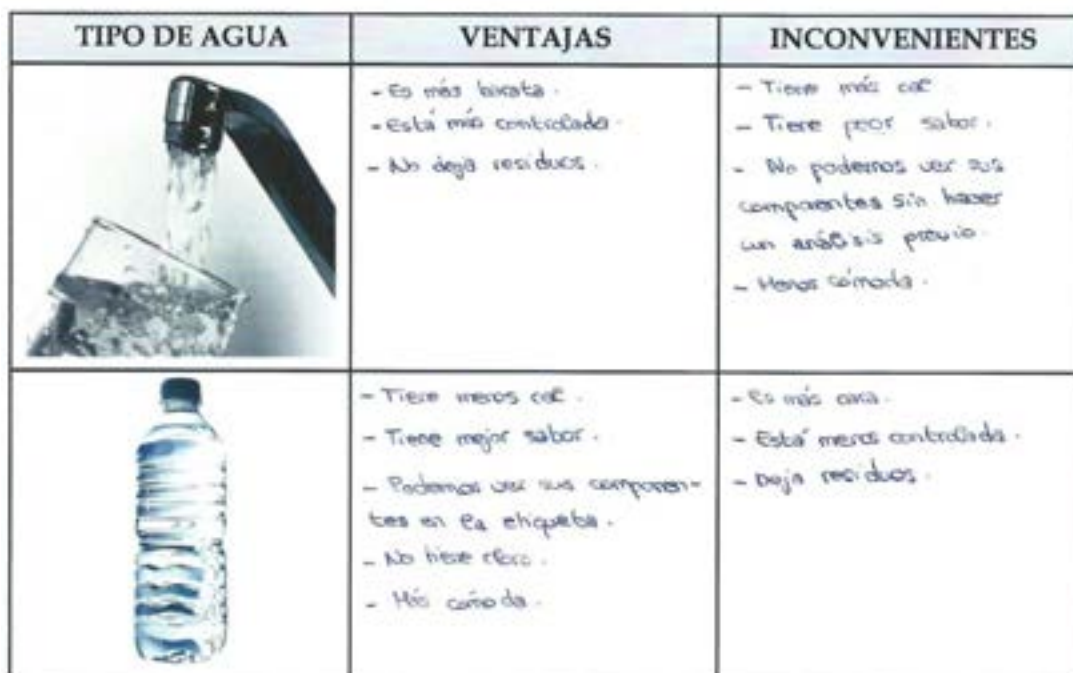 TIPO DE AGUA
VENTAJAS
INCONVENIENTES
- Es más barata.
- Está más controlada.
- No deja residuos.
- Tiene más cal
- Tiene peor sabor.
- No podemos ver sus
componentes sin hacer
un análisis previo.
- Menos cómoda.
- Tiene menos cal.
- Tiene mejor sabor.
- Podemos ver sus componen-
tes en la etiqueta.
- No tiene cloro.
- Más cómoda.
- Es más cara.
- Está menos controlada.
- Deja residuos.